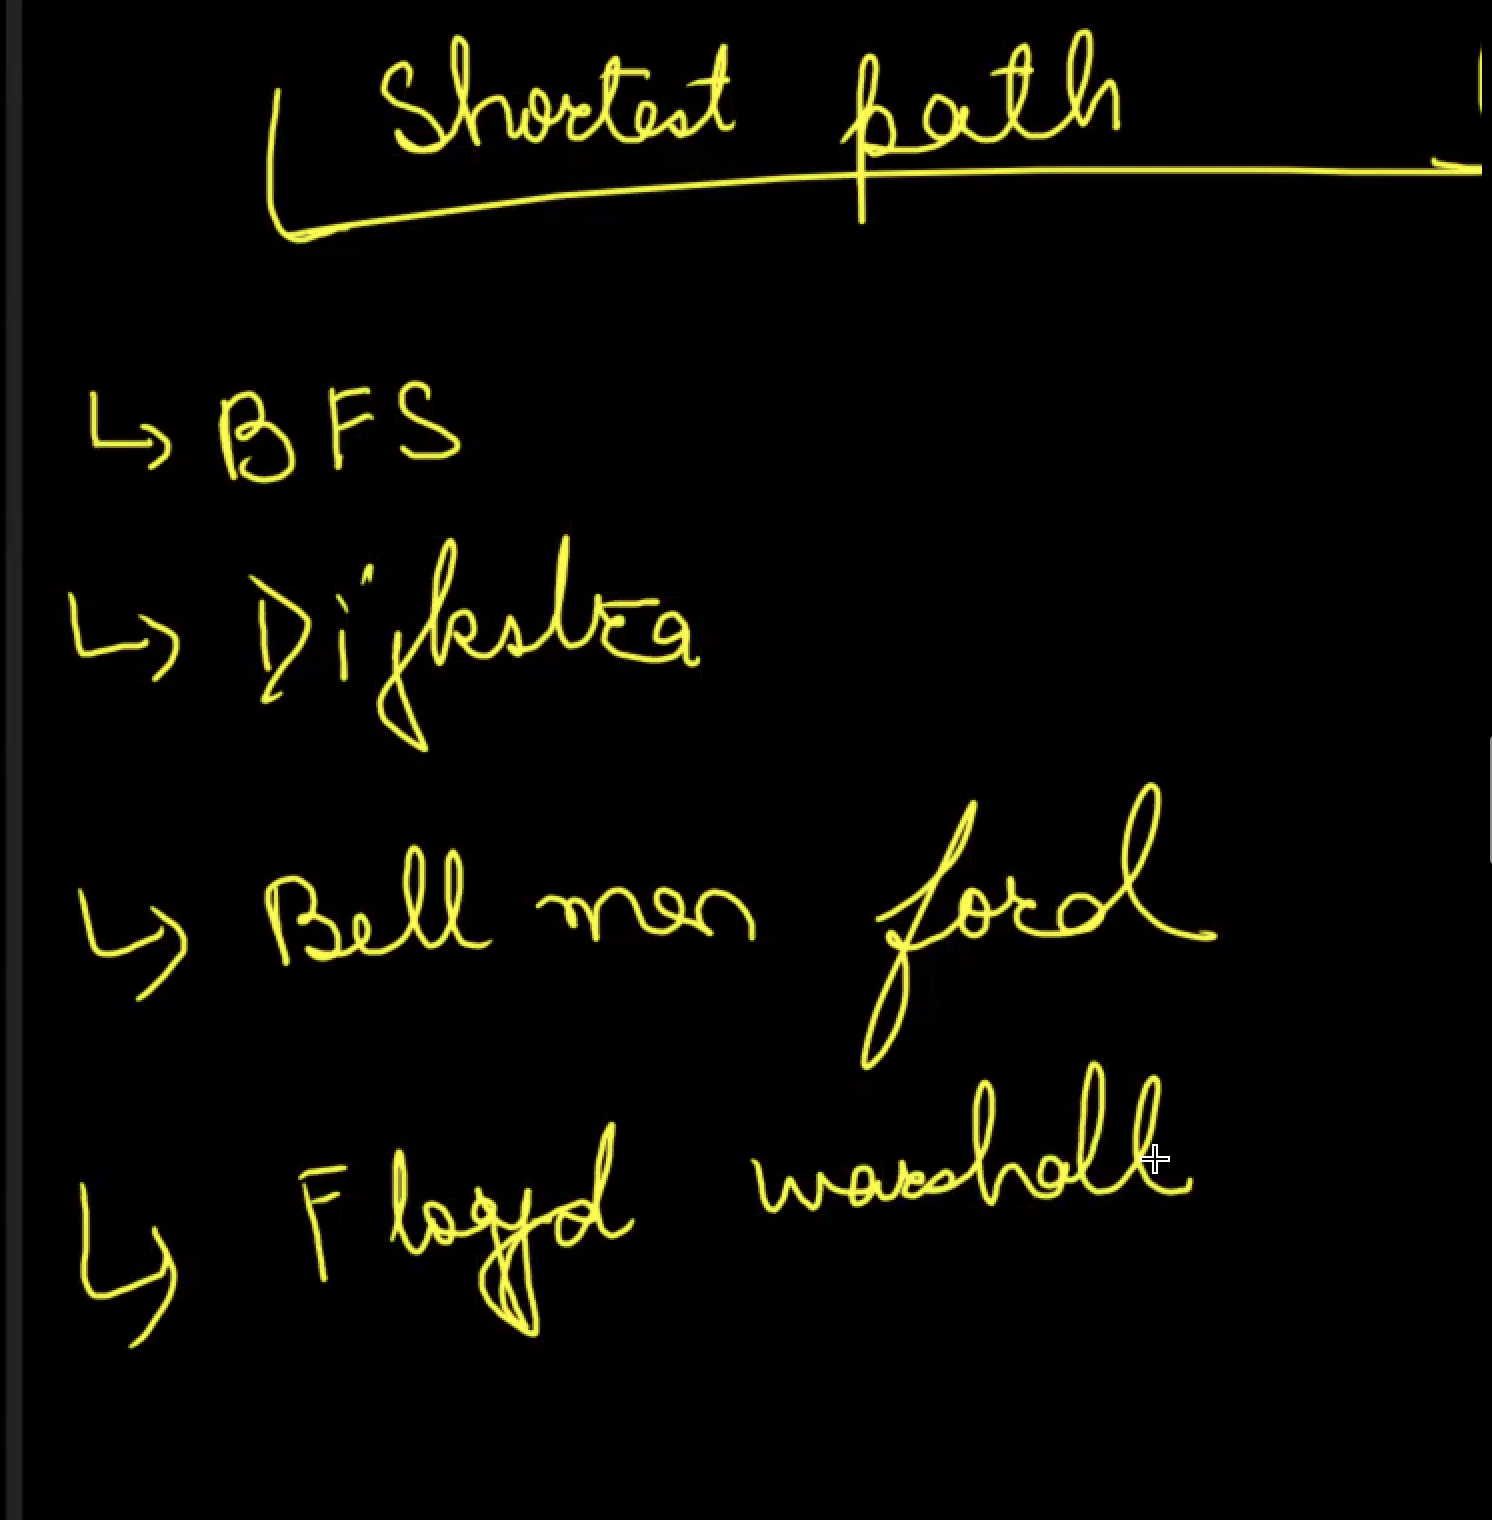 Shortest path
↳ BFS
↳ Dijkstra
↳ Bell man ford
↳ Floyd warshall